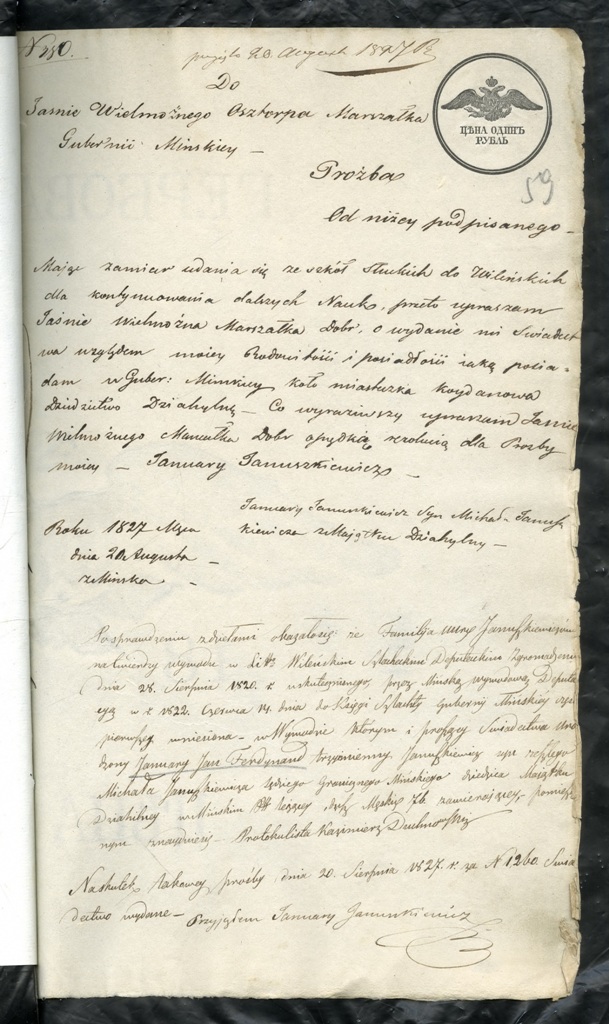 N 480.
przyięto 20. August 1827 R
Do
Jasnie Wielmożnego Oszterpa Marszałka
Gubernii Minskiey —
ЦѢНА ОДИНЪ
РУБЛЬ
59
Prożba
Od niżey podpisanego —
Maiąc zamiar udania się ze szkół Słuckich do Wileńskich
dla kontynuowania dalszych Nauk, przeto upraszam
Jaśnie Wielmożna Marszałka Dobr, o wydanie mi Swiadect
wa względem moiey Rodowitości i posiadłości iaką posia-
dam w Guber: Minskiey koło miasteczka Koydanowa
Dziedzictwo Dziahylnę — Co wyraziwszy upraszam Jasnie
Wielmożnego Marszałka Dobr rezolucią dla Prozby
moiey — January Januszkiewicz —
January Januszkiewicz Syn Michała Janusz
kiewicza z Maiątku Dziahylny —
Roku 1827 Mca
dnia 20 Augusta —
z Mińska —
Po sprawdzeniu z dziełami okazało się: że Familja Januszkiewiczow
na Twierdzy wywodu w Wileńskim Szlacheckim Deputackim Zgromadzeniu
dnia 28. Sierpnia 1820. r. uskutecznionego, przez Minską wywodową Deputa
cyą w r. 1822. Czerwca 14. dnia do Księgi Szlachty Gubernij Mińskiey części
pierwszey wniesiona — w Wywodzie ktorym i proszący Swiadectwa Uro
dzony January Jan Ferdynand trzyimienny Januszkiewicz syn zeszłego
Michała Januszkiewicza Sędziego Granicznego Mińskiego dziedzica Maiątku
Dziahilney w Mińskim Pttcie leżącey dusz Męskich 76. zawierającey, pomiesz
nym znayduie się — Protokulista Kazimierz
Na skutek takowey prośby dnia 20. Sierpnia 1827. r. za N 1260. Swia
dectwo wydane — Przyjąłem January Januszkiewicz